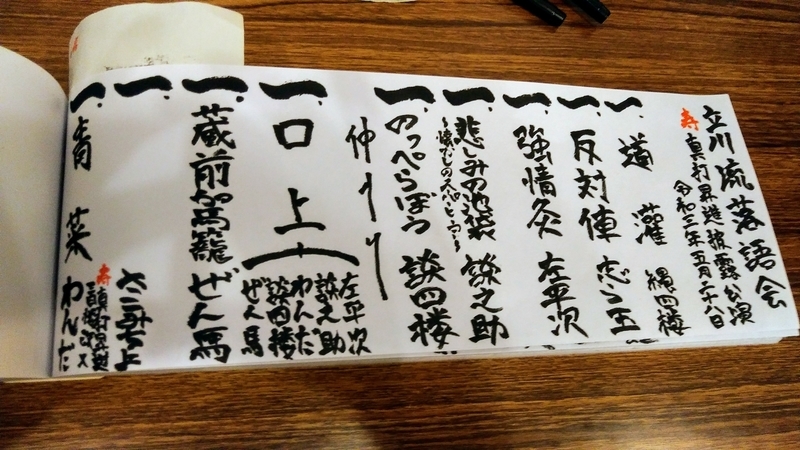 立川流落語会
寿 真打昇進披露公演
令和三年五月二十八日
一、道灌 縄四楼
一、反対俥 志ら玉
一、強情灸 左平次
一、悲しみの池袋 談之助
〜懐かしのスーパーヒーロー〜
一、のっぺらぼう 談四楼
仲入り
一、口上
左平次
談之助
わんだ
談四楼
ぜん馬
一、蔵前駕籠 ぜん馬
一、
一、青菜
寿
わんだ